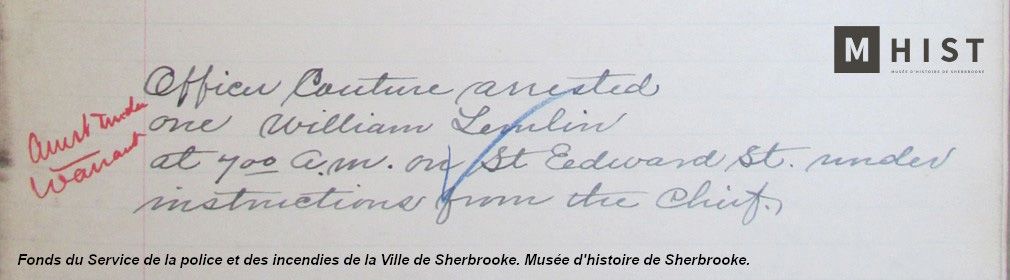 M HIST
MUSÉE D'HISTOIRE DE SHERBROOKE
Officer Couture arrested
one William Lemlin
at 7⁰⁰ a.m. on St Eedward St. under
instructions from the Chief.
arrest under
warrant
Fonds du Service de la police et des incendies de la Ville de Sherbrooke. Musée d'histoire de Sherbrooke.